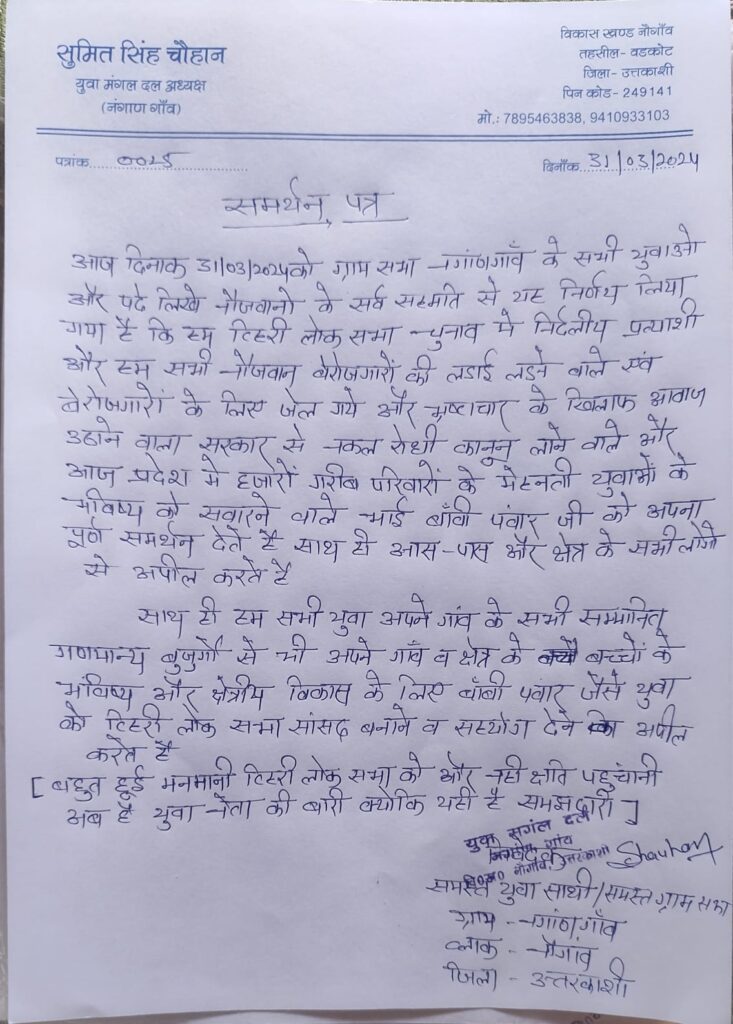 सुमित सिंह चौहान
युवा मंगल दल अध्यक्ष
(नंगाण गाँव)
विकास खण्ड नौगाँव
तहसील- वडकोट
जिला- उत्तकाशी
पिन कोड- 249141
मो.: 7895463838, 9410933103
पत्रांक 0025
दिनाँक 31/03/2024
समर्थन पत्र
आज दिनाक 31/03/2024को ग्राम सभा नगांणगाँव के सभी युवाओ
और पढे लिखे नौजवानो के सर्व सहमति से यह निर्णय लिया
गया है कि हम टिहरी लोक सभा चुनाव मे निर्दलीय प्रत्याशी
और हम सभी नौजवान बेरोजगारों की लडाई लडने वाले एवं
बेरोजगारों के लिए जेल गये और भ्रष्टाचार के खिलाफ आवाज
उठाने वाला सरकार से नकल रोधी कानून लाने वाले और
आज प्रदेश मे हजारों गरीब परिवारों के मेहनती युवाओं के
भविष्य को सवारने वाले भाई बाँबी पंवार जी को अपना
पूर्ण समर्थन देते है साथ ही आस-पास और क्षेत्र के सभी लोगो
से अपील करते है
साथ ही हम सभी युवा अपने गांव के सभी सम्मानित
गणमान्य बुजुर्गो से भी अपने गाँव व क्षेत्र के बच्चों के
भविष्य और क्षेत्रीय विकास के लिए बाँबी पवार जैसे युवा
को टिहरी लोक सभा सांसद बनाने व सहयोग देने की अपील
करते है
[ बहुत हुई मनमानी टिहरी लोक सभा को और नही क्षति पहुंचानी
अब है युवा नेता की बारी क्योकि यही है समझदारी ]
युवक मंगल दल
समस्त युवा साथी/समस्त ग्राम सभा
ग्राम - नगांणगाँव
ब्लाक - नौगांव
जिला - उत्तरकाशी